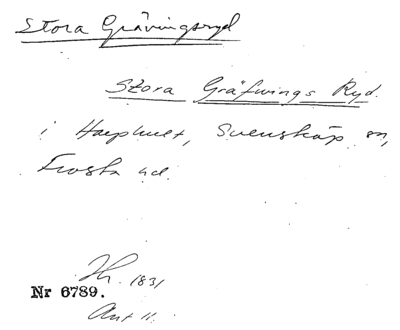 Stora Grävingsryd
Stora Gräfwings Ryd.
i Harphult, Svensköp sn,
Frosta hd.
1831
Nr 6789.
Ant 11.